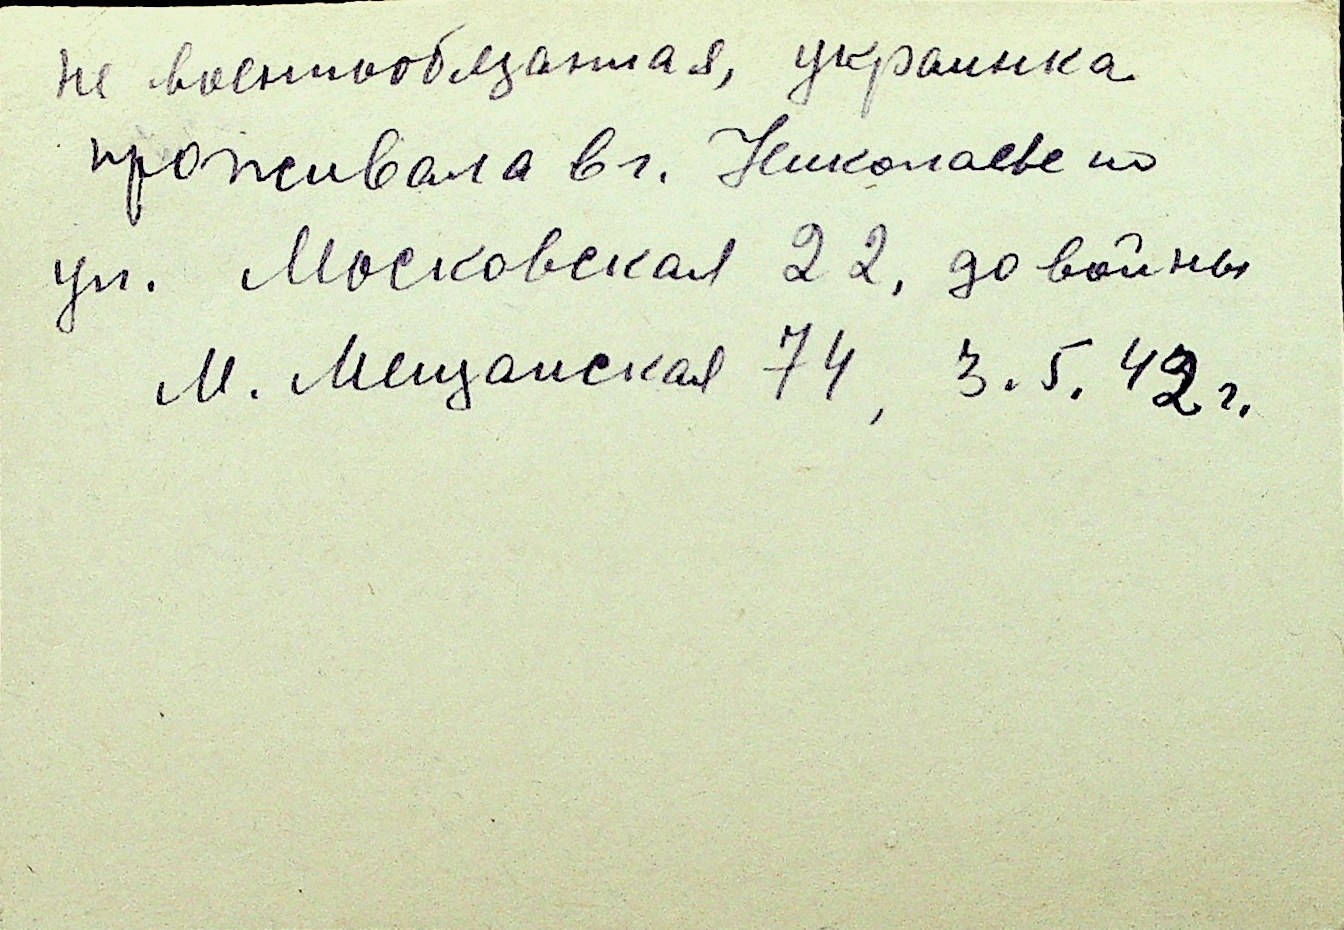 не военнообязанная, украинка
проживала в г. Николаеве по
ул. Московская 22, до войны
М. Мещанская 74, 3.5.42 г.